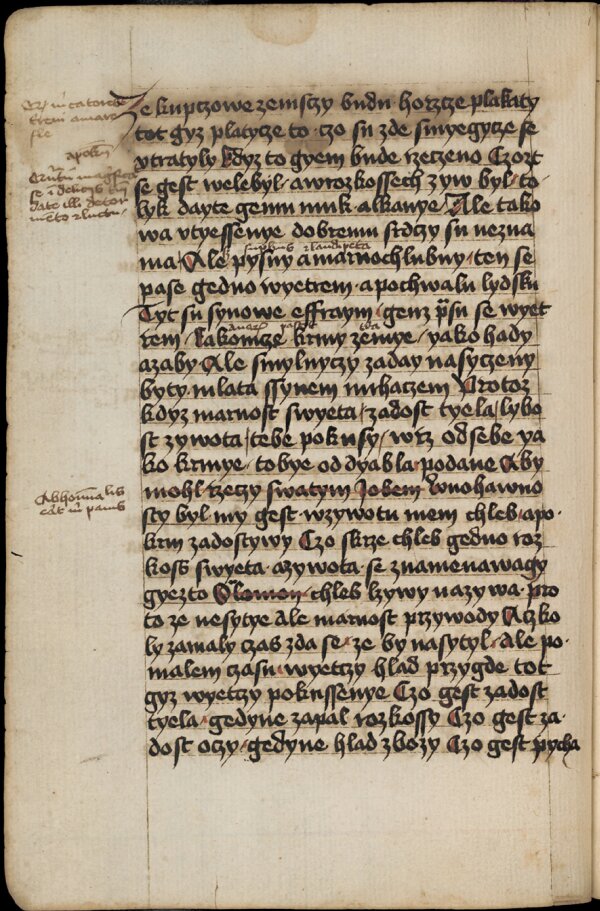 Ze kupczowe zemsczy budu horzcze plakaty
tot gyz platycze to czo su zde smyegycze se
vtratyly kdyz to gyem bude rzeczeno Czozt
se gest welebyl a wrozkossech zyw byl to
lyk dayte gemu muk a lkanye Ale tako
wa vtyessenye dobremu srdczy su nezna
ma Ale pysny a marnochlubny ten se
pase gedno wyetrem a pochwalu lydsku
Tyt su synowe effraym genz pasu se wyet
rem lakomcze krmy zemye yako hady
a zaby Ale smylnyczy zaday nasyczeny
byty mlata ssynem mihaczem Protoz
kdyz marnost swyeta zadost tyela lybo
st zywota tebe pokusy wrz od sebe ya
ko krmye tobye od dyabla podane Aby
mohl rzeczy swatym Jobem Wnohawno
sty byl my gest wzywotu mem chleb a po
krm zadostywy Czo skrze chleb gedno roz
koss swyeta a zywota se znamenawagy
gyezto Salomon chleb lzywy nazywa pro
to ze nesytye Ale marnost przywody Aczko
ly zamaly czas zda se ze by nasytyl Ale po
malem czasu wyetczy hlad przygde tot
gyz wyetczy pokussenye Czo gest zadost
tyela gedyne zapal rozkossy Czo gest za
dost oczy gedyne hlad zbozy Czo gest pycha